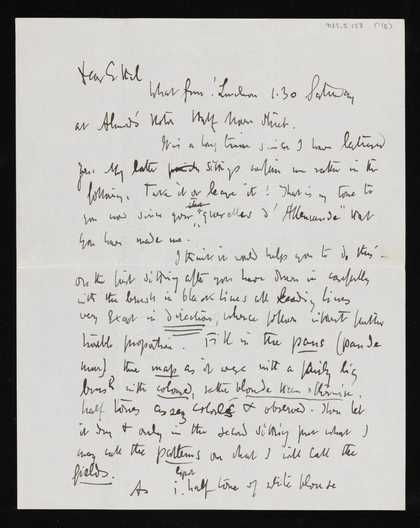 Dear Ethel
What fun! Luncheon 1.30 Saturday
at Hotel Half Moon Street.
It is a long time since I have lectured
you. My later sittings confirm me rather in the
following. Take it or leave it! That is my tone to
you now since your the "querelles d'Allemande" that
you have made me.
I think it would help you to do this:
on the first sitting after you have drawn in carefully
with the brush in black lines all leading lines
very exact in direction, whence follows without further
trouble proportion. Fill in the pans (pan de
mur), the map as it were with a fairly big
brush with colour,
half tones as colored & observed. Then let
it dry & only in the second sitting put what I
may call the patterns on what I will call the
fields.
As i. light half tone of white blouse